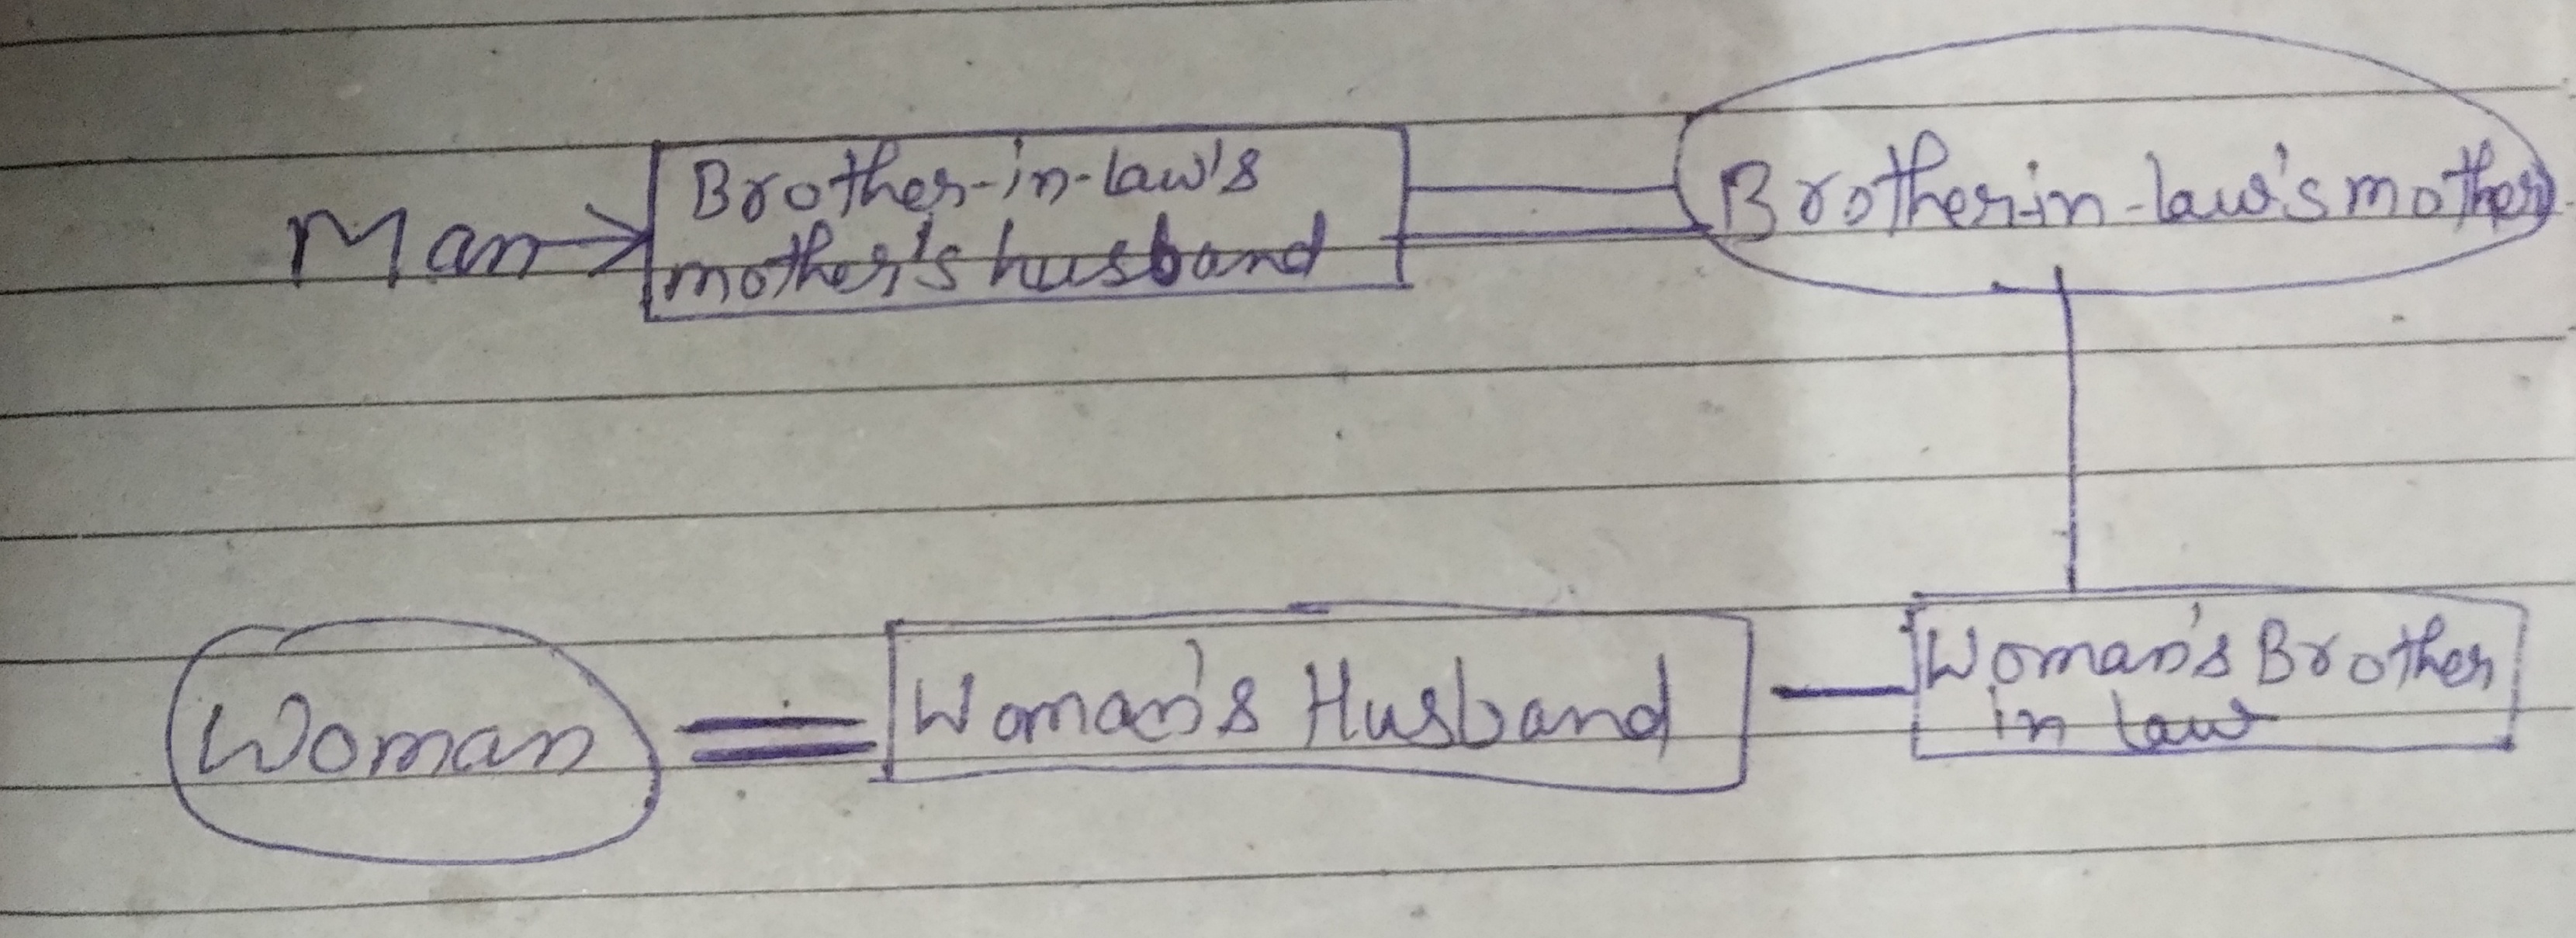 Brother-in-law's
Man → mother's husband
Brother-in-law's mother
Woman
Woman's Husband
Woman's Brother
in law